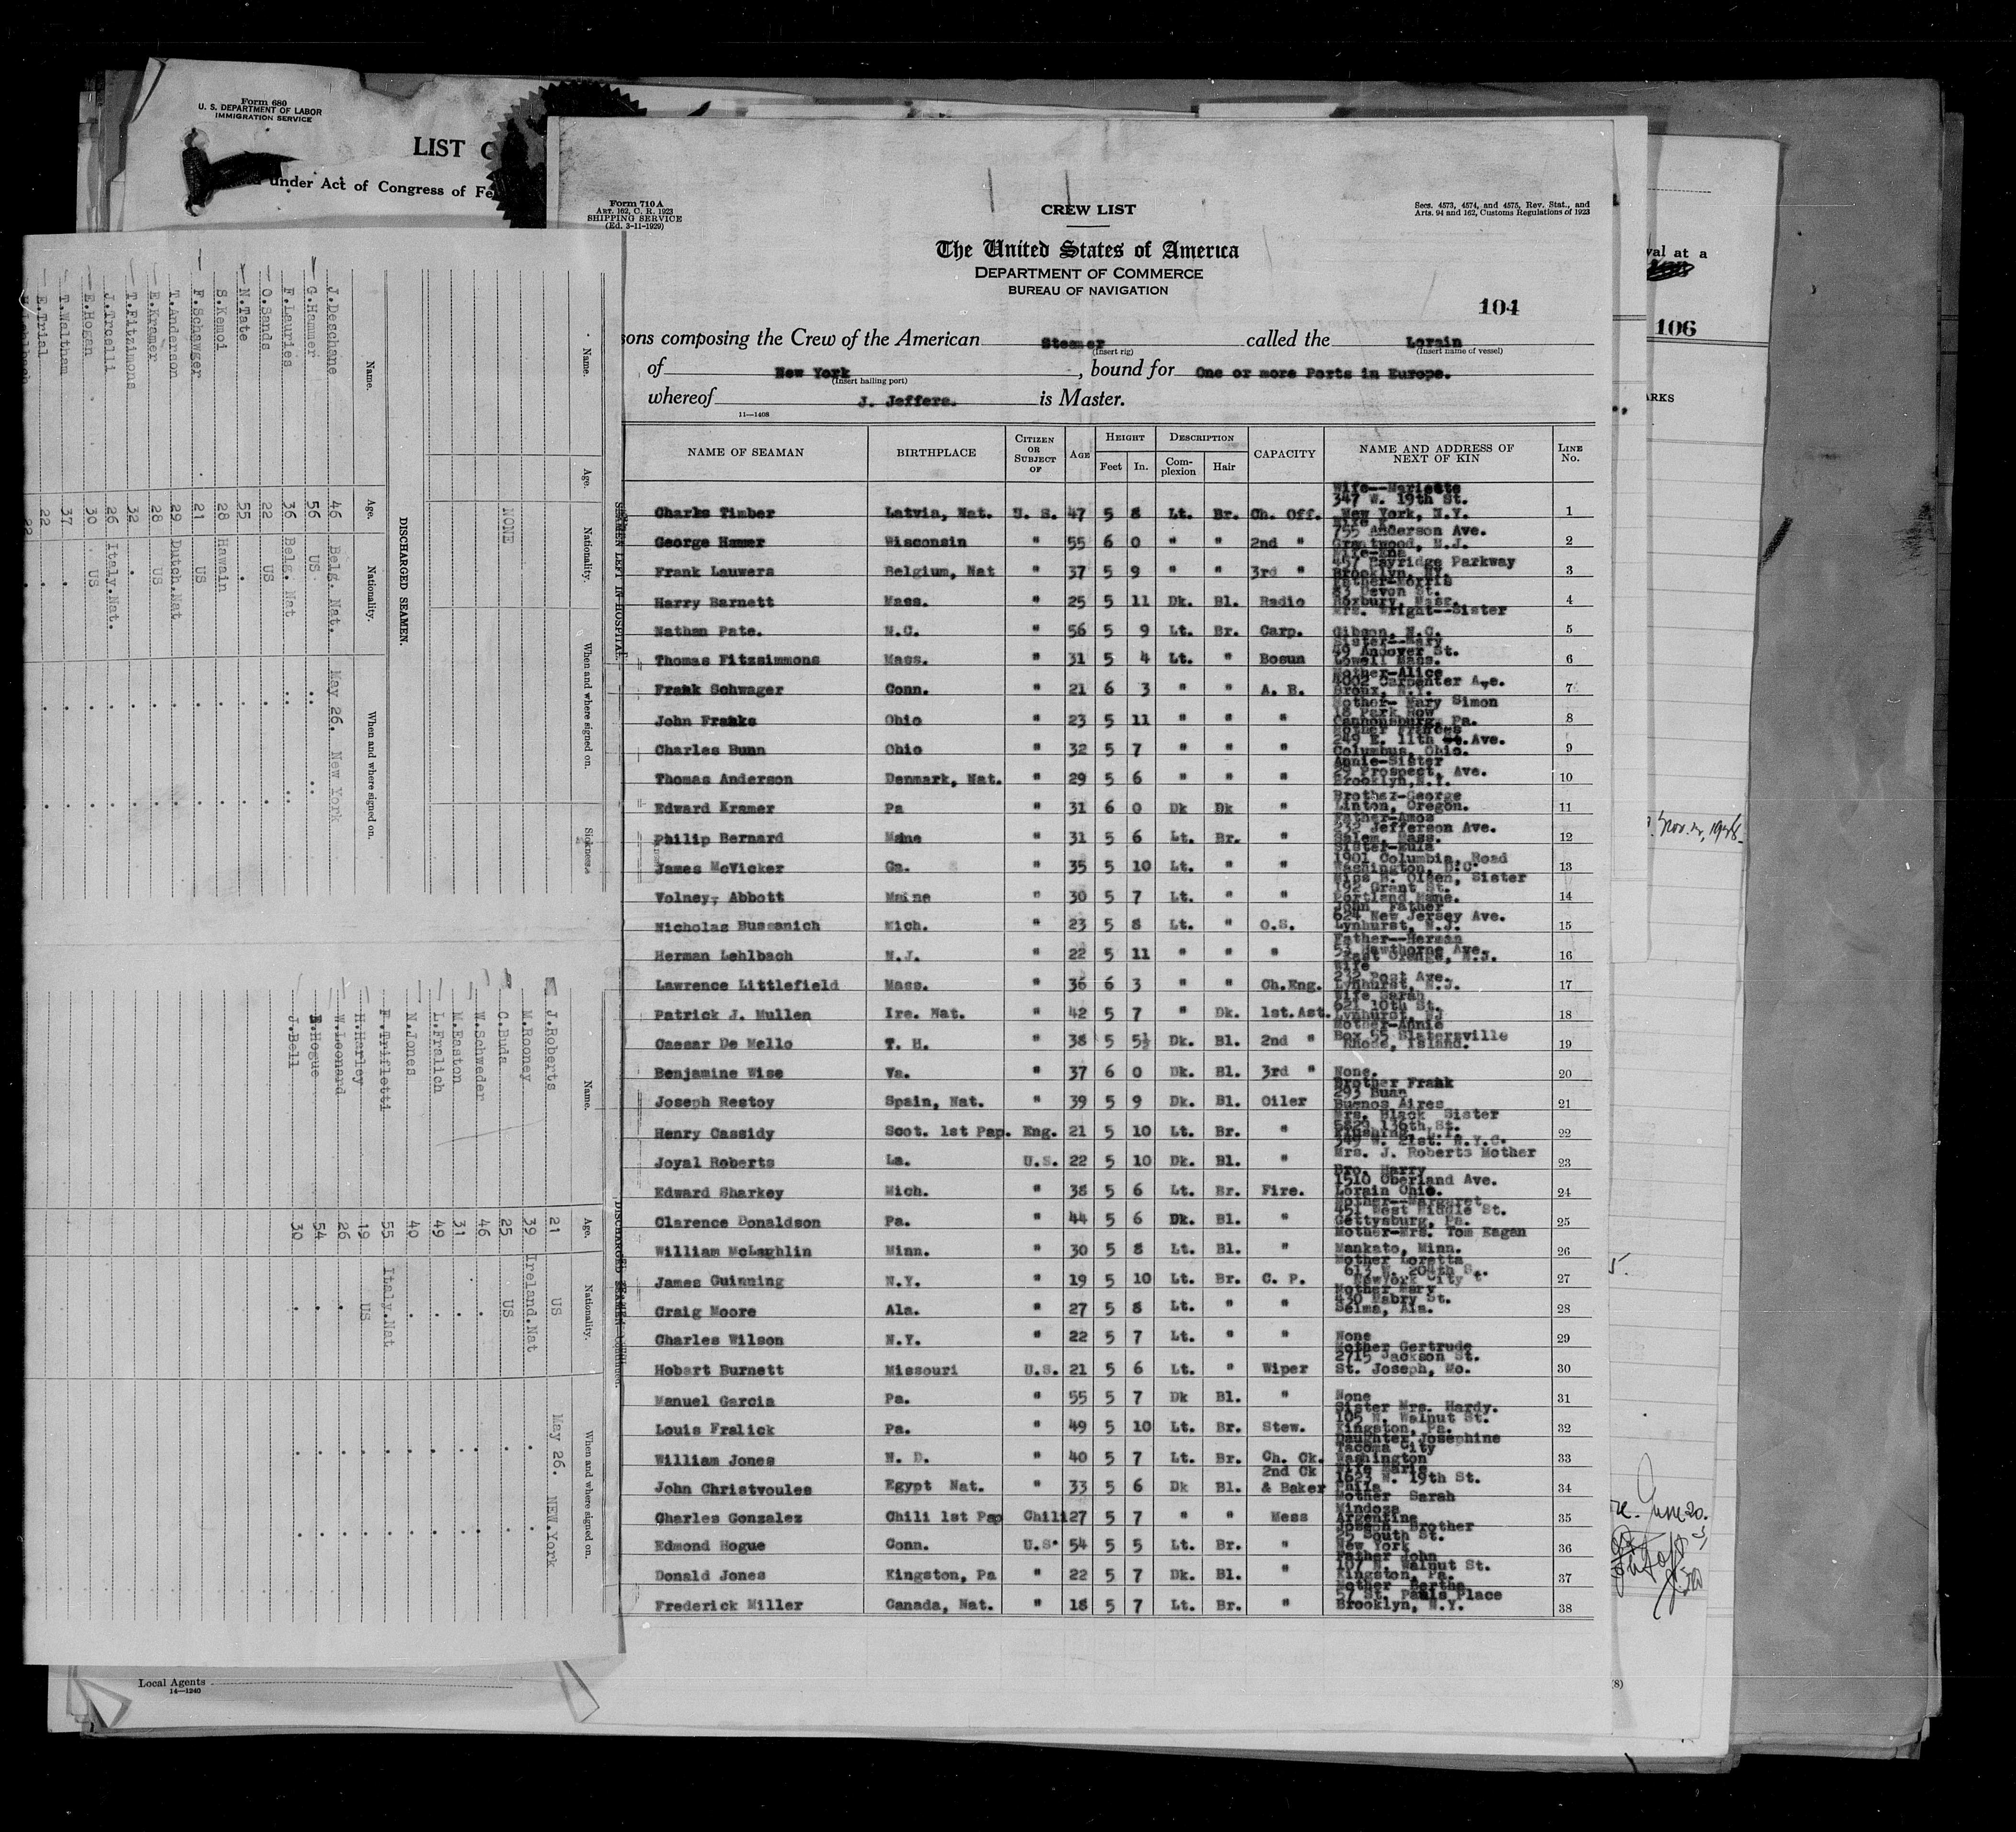 Form 680
U. S. DEPARTMENT OF LABOR
IMMIGRATION SERVICE
LIST
under Act of Congress of Fe
Form 710 A
Art. 162, C. R. 1923
SHIPPING SERVICE
(Ed. 3-11-1929)
CREW LIST
Secs. 4573, 4574, and 4575, Rev. Stat., and
Arts. 94 and 162, Customs Regulations of 1923
The United States of America
DEPARTMENT OF COMMERCE
BUREAU OF NAVIGATION
104
sons composing the Crew of the American Steamer called the Lorain
(Insert rig) (Insert name of vessel)
of New York, bound for One or more Ports in Europe.
(Insert hailing port)
whereof J. Jeffers. is Master.
11—1408
NAME OF SEAMAN BIRTHPLACE CITIZEN OR SUBJECT OF AGE HEIGHT Feet In. DESCRIPTION Complexion Hair CAPACITY NAME AND ADDRESS OF NEXT OF KIN LINE No.
Wife--Mariette
347 W. 19th St.
Charks Timber Latvia, Nat. U. S. 47 5 8 Lt. Br. Ch. Off. New York, N.Y. 1
755 Anderson Ave.
George Hammer Wisconsin " 55 6 0 " " 2nd " Grantwood, N.J. 2
Wife-Ena
457 Bayridge Parkway
Frank Lauwers Belgium, Nat " 37 5 9 " " 3rd " Brooklyn, NY. 3
Father-Morris
83 Devon St.
Harry Barnett Mass. " 25 5 11 Dk. Bl. Radio Roxbury, Mass. 4
Mrs. Wright--Sister
Nathan Pate. N.C. " 56 5 9 Lt. Br. Carp. Gibson, N.C. 5
Sister--Mary
49 Andover St.
Thomas Fitzsimmons Mass. " 31 5 4 Lt. " Bosun Lowell Mass. 6
Mother-Alice
4002 Carpenter Ave.
Frank Schwager Conn. " 21 6 3 " " A. B. Bronx, N.Y. 7
Mother- Mary Simon
18 Park Row
John Franks Ohio " 23 5 11 " " " Cannonsburg, Pa. 8
Mother Frances
249 E. 11th Ave.
Charles Bunn Ohio " 32 5 7 " " " Columbus, Ohio. 9
Annie-Sister
29 Prospect, Ave.
Thomas Anderson Denmark, Nat. " 29 5 6 " " " Brooklyn, N.Y. 10
Brother-George
Edward Kramer Pa " 31 6 0 Dk Dk " Linton, Oregon. 11
Father-Amos
232 Jefferson Ave.
Philip Bernard Mane " 31 5 6 Lt. Br. " Salem, Mass. 12
Sister-Eula
1901 Columbia, Road
James McVicker Ga. " 35 5 10 Lt. " " Washington, D.C. 13
Miss B. Olsen, Sister
192 Grant St.
Volney, Abbott Maine " 30 5 7 Lt. " " Portland Mane. 14
John Father
624 New Jersey Ave.
Nicholas Bussanich Mich. " 23 5 8 Lt. " O.S. Lynhurst, N.J. 15
Father--Herman
53 Hawthorne Ave.
Herman Lehlbach N.J. " 22 5 11 " " " East Orange, N.J. 16
Wife
232 Post Ave.
Lawrence Littlefield Mass. " 36 6 3 " " Ch.Eng. Lynhurst, N.J. 17
Wife Sarah
621 10th St.
Patrick J. Mullen Ire. Nat. " 42 5 7 " Dk. 1st.Ast. Lynhurst, NJ 18
Mother-Annie
Box 55 Slatersville
Caesar De Mello T. H. " 38 5 5½ Dk. Bl. 2nd " Rhode, Island. 19
Benjamine Wise Va. " 37 6 0 Dk. Bl. 3rd " None. 20
Brother Frank
293 Buan
Joseph Restoy Spain, Nat. " 39 5 9 Dk. Bl. Oiler Buenos Aires 21
Mrs. Black Sister
5829 136th St.
Henry Cassidy Scot. 1st Pap. Eng. 21 5 10 Lt. Br. " Flushing, L.I. 22
349 W. 21st. N.Y.C.
Joyal Roberts La. U.S. 22 5 10 Dk. Bl. " Mrs. J. Roberts Mother 23
Bro. Harry
1510 Oberland Ave.
Edward Sharkey Mich. " 38 5 6 Lt. Br. Fire. Lorain Ohio. 24
Mother--Margaret
451 West Middle St.
Clarence Donaldson Pa. " 44 5 6 Dk. Bl. " Gettysburg, Pa. 25
Mother-Mrs. Tom Eagan
William McLaghlin Minn. " 30 5 8 Lt. Bl. " Mankato, Minn. 26
Mother Loretta
613 W. 204th St.
James Guinning N.Y. " 19 5 10 Lt. Br. C. P. Newyork City 27
Mother Mary
430 Mabry St.
Craig Moore Ala. " 27 5 8 Lt. " " Selma, Ala. 28
Charles Wilson N.Y. " 22 5 7 Lt. " " None 29
Mother Gertrude
2715 Jackson St.
Hobart Burnett Missouri U.S. 21 5 6 Lt. " Wiper St. Joseph, Mo. 30
Manuel Garcia Pa. " 55 5 7 Dk Bl. " None 31
Sister Mrs. Hardy.
105 N. Walnut St.
Louis Fralick Pa. " 49 5 10 Lt. Br. Stew. Kingston, Pa. 32
Daughter Josephine
Tacoma City
William Jones N. D. " 40 5 7 Lt. Br. Ch. Ck. Washington 33
Wife Marie
1623 N. 19th St.
John Christvoules Egypt Nat. " 33 5 6 Dk Bl. 2nd Ck & Baker Phila 34
Mother Sarah
Mindoza
Charles Gonzalez Chili 1st Pap Chili 27 5 7 " " Mess Argentine 35
Joseph Brother
25 South St.
Edmond Hogue Conn. U.S. 54 5 5 Lt. Br. " New York 36
Father John
107 N. Walnut St.
Donald Jones Kingston, Pa " 22 5 7 Dk. Bl. " Kingston, Pa. 37
Mother Bertha
57 St. Pauls Place
Frederick Miller Canada, Nat. " 18 5 7 Lt. Br. " Brooklyn, N.Y. 38
SEAMEN LEFT IN HOSPITAL
Name. Age. Nationality. When and where signed on. Sickness
NONE
DISCHARGED SEAMEN.
Name. Age. Nationality. When and where signed on.
J.Deschane 46 Belg. Nat. May 26. New York
G.Hammer 56 US
F.Lauries 36 Belg. Nat
O.Sands 22 US
N.Tate 55
S.Kemoi 28 Hawain
F.Schawger 21 US
T.Anderson 29 Dutch.Nat
E.Kramer 28 US
T.Fitzimons 32
J.Trcelli 26 Italy.Nat.
E.Hogan 30 US
T.Waltham 37
E.Trial 22
22
DISCHARGED SEAMEN
Name. Age. Nationality. When and where signed on.
J.Roberts 21 US May 26. NEW.York
M.Rooney 39 Ireland.Nat
C.Buda 25 US
W.Schweder 46
M.Easton 31
L.Fralich 49
N.Jones 40
F.Trifletti 55 Italy.Nat
H.Harley 19 US
W.Leonard 26
E.Hogue 54
J.Bell 30
Local Agents
14—1240
val at a
106
ARKS
Nov.
June 20.
(8)